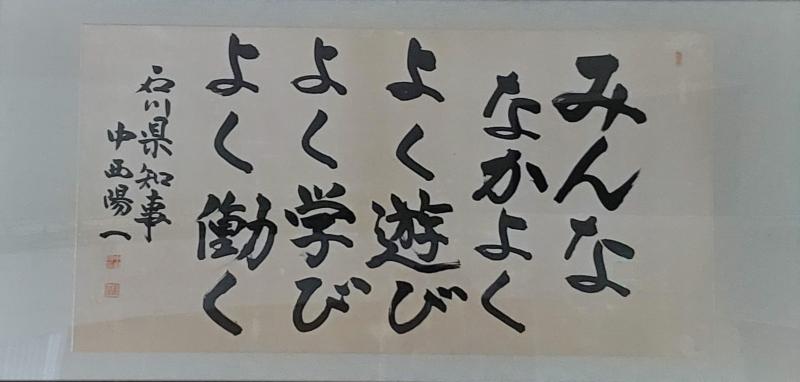 みんな
なかよく
よく遊び
よく学び
よく働く
石川県知事
中西陽一